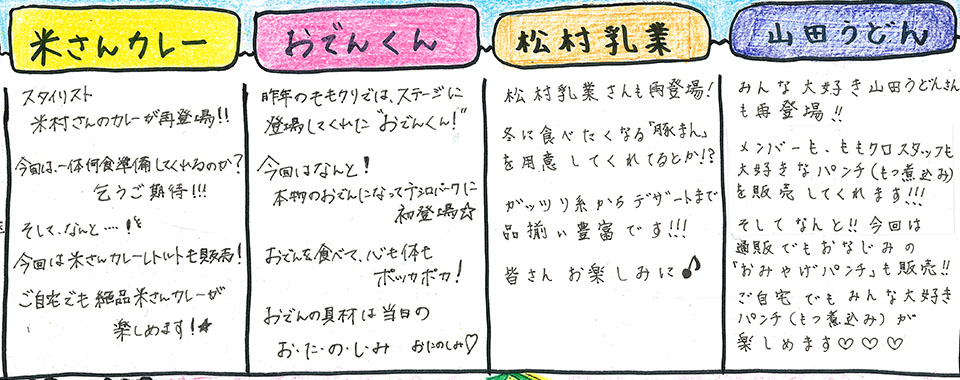 米さんカレー
スタイリスト
米村さんのカレーが再登場!!
今回は一体何食準備してくれるのか?
乞うご期待!!!
そして、なんと…!
今回は米さんカレーレトルトも販売!
ご自宅でも絶品米さんカレーが
楽しめます!★
おでんくん
昨年のももクリでは、ステージに
登場してくれた"おでんくん!"
今回はなんと!
本物のおでんになってテンロパークに
初登場☆
おでんを食べて、心も体も
ポッカポカ!
おでんの具材は当日の
お・た・の・し・み おたのしみ♡
松村乳業
松村乳業さんも再登場!
冬に食べたくなる「豚まん」
を用意してくれてるとか!?
ガッツリ系からデザートまで
品揃い豊富です!!!
皆さんお楽しみに♪
山田うどん
みんな大好き山田うどんさん
も再登場!!
メンバーも、ももクロスタッフも
大好きなパンチ(もつ煮込み)
を販売してくれます!!!
そしてなんと!!今回は
通販でもおなじみの
「おみやげパンチ」も販売!!
ご自宅でもみんな大好き
パンチ(もつ煮込み)が
楽しめます♡♡♡